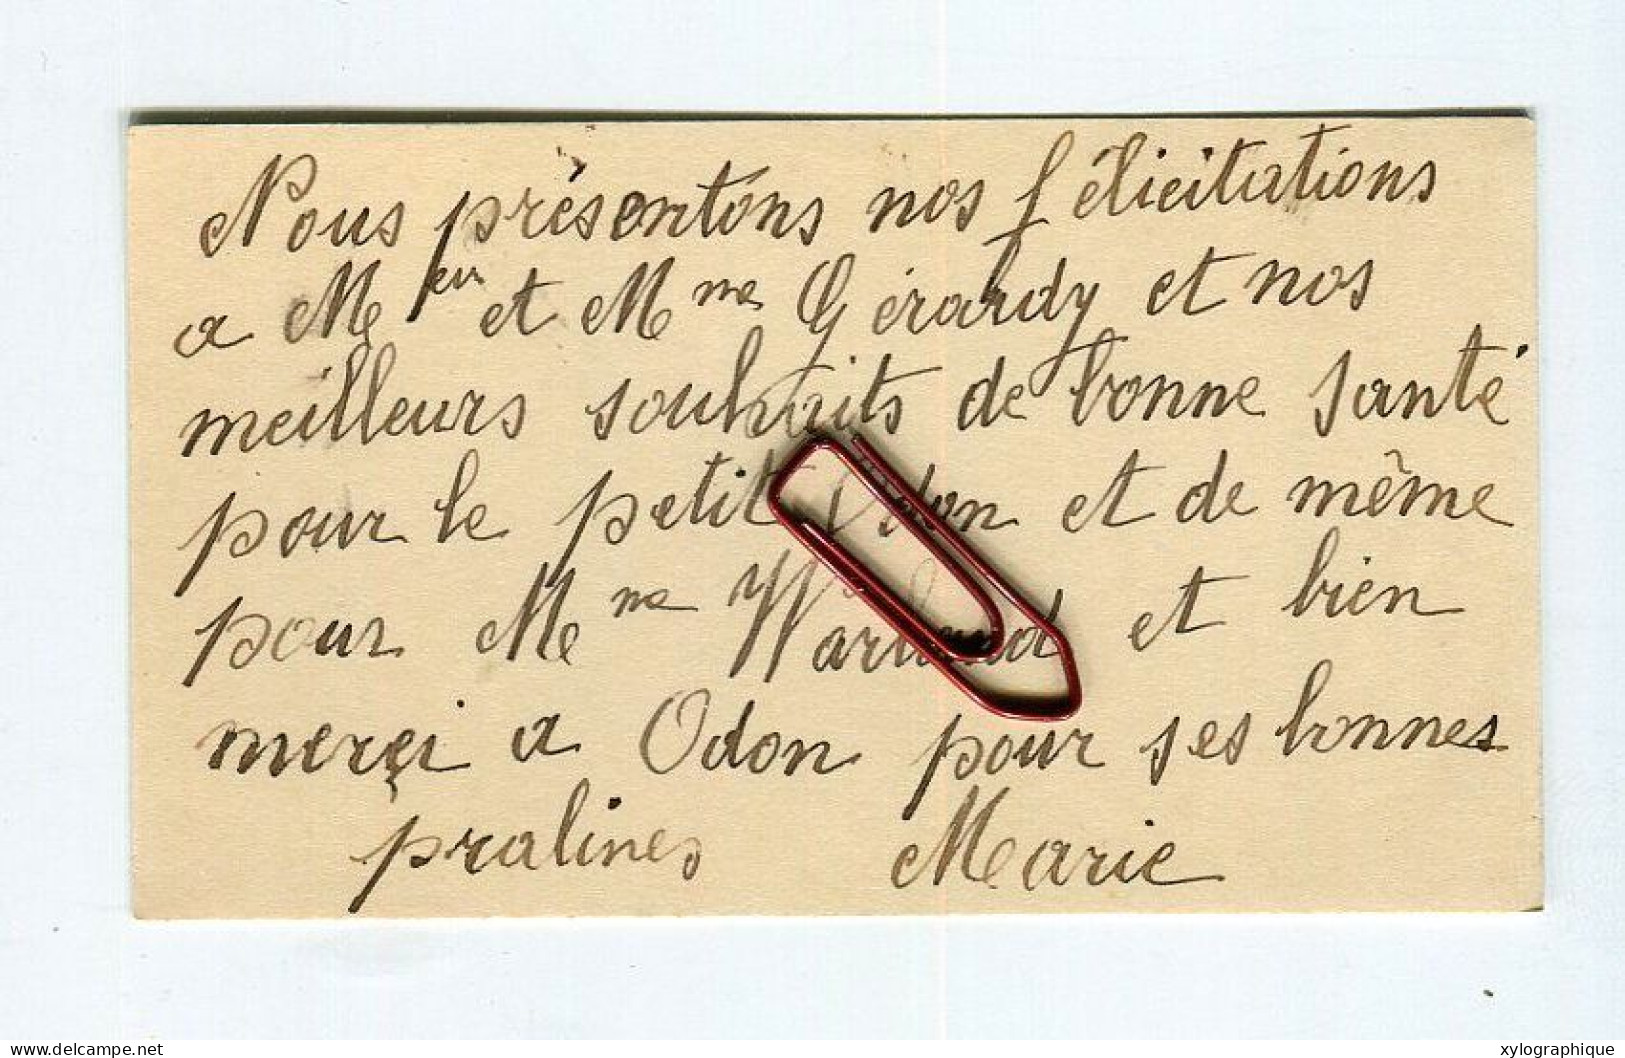 Nous présentons nos félicitations
a Meur et Mme Gérardy et nos
meilleurs souhaits de bonne santé
pour le petit Odon et de même
pour Mme et bien
merçi a Odon pour ses bonnes
pralines Marie
www.delcampe.net
xylographique